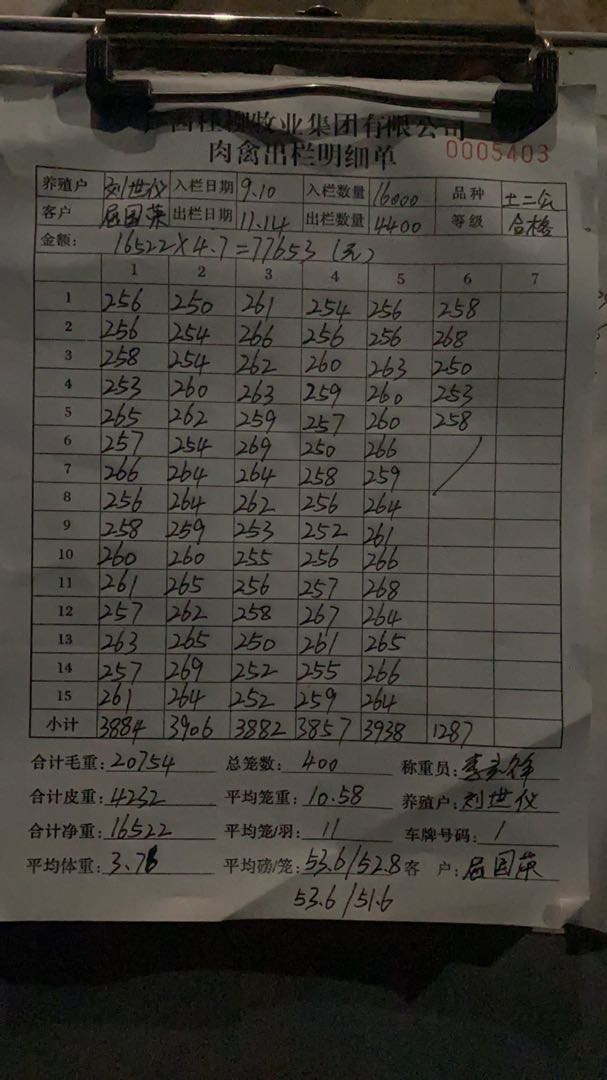 牧业集团有限公司
肉禽出栏明细单 0005403
养殖户 刘世仪 入栏日期 9.10 入栏数量 16000 品种 土二公
客户 屈国英 出栏日期 11.14 出栏数量 4400 等级 合格
金额: 16522×4.7=77653 (元)
1 2 3 4 5 6 7
1 256 250 261 254 256 258
2 256 254 266 256 256 268
3 258 254 262 260 263 250
4 253 260 263 259 260 253
5 265 262 259 257 260 258
6 257 254 269 250 266
7 266 264 264 258 259
8 256 264 262 256 264
9 258 259 253 252 261
10 260 260 255 256 266
11 261 265 256 257 268
12 257 262 258 267 264
13 263 265 250 261 265
14 257 269 252 255 266
15 261 264 252 259 264
小计 3884 3906 3882 3857 3938 1287
合计毛重: 20754 总笼数: 400 称重员:
合计皮重: 4232 平均笼重: 10.58 养殖户: 刘世仪
合计净重: 16522 平均笼/羽: 11 车牌号码: 1
平均体重: 3.76 平均磅/笼: 53.6/52.8 客户: 屈国英
53.6/51.6